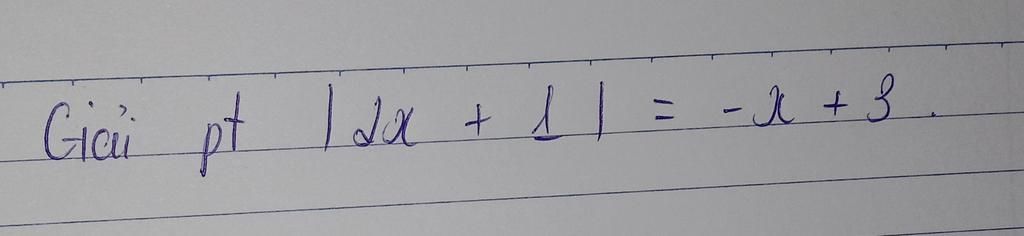 Giải pt |2x + 1| = -x + 3.